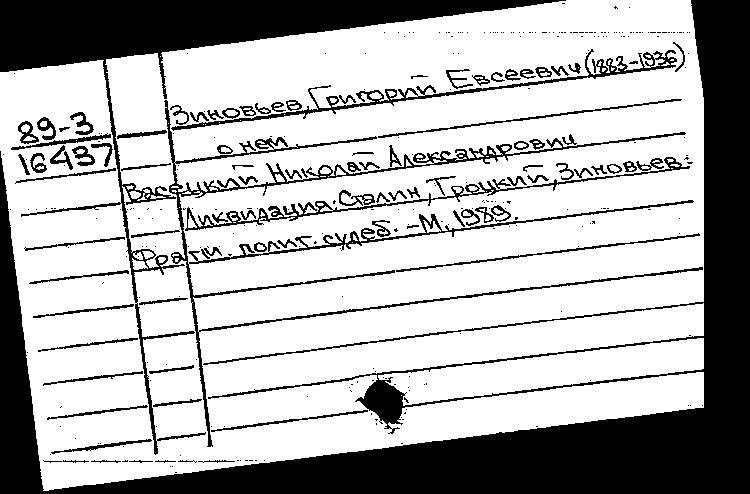 Зиновьев, Григорий Евсеевич (1883-1936)
89-3
16437
о нем.
Васецкий, Николай Александрович
Ликвидация: Сталин, Троцкий, Зиновьев:
Фрагм. полит. судеб. -М., 1989.